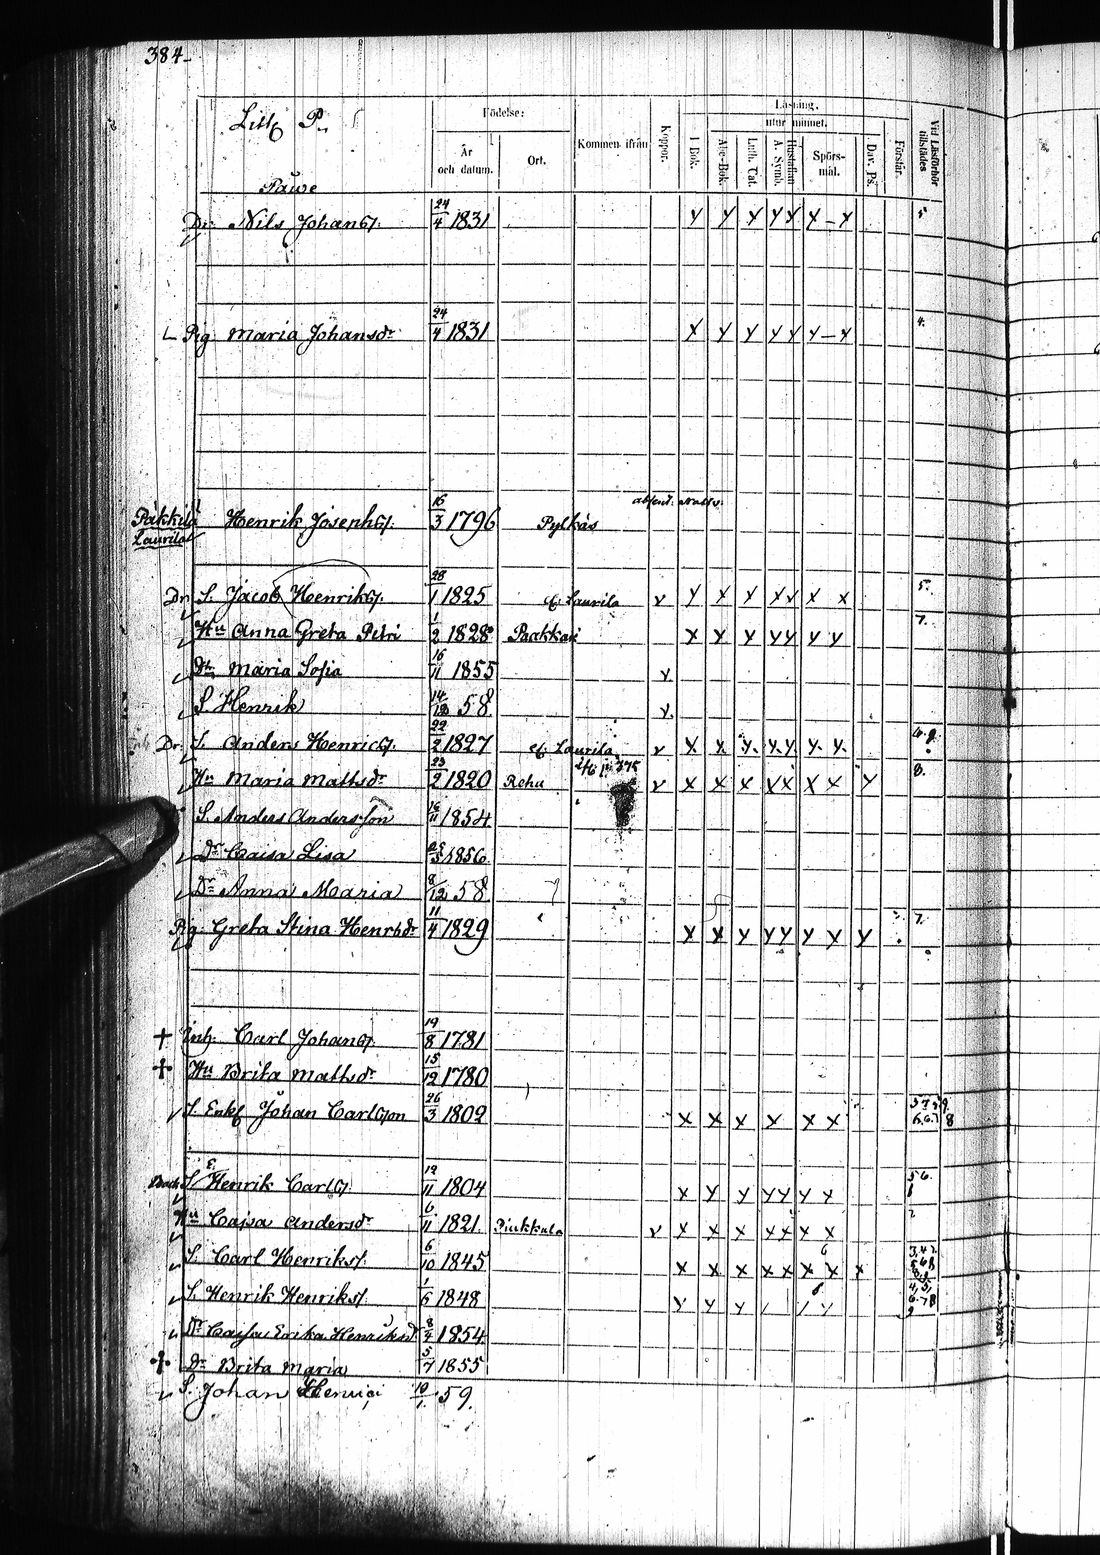 384
Litt P.
Födelse:
År och datum.
Ort.
Kommen ifrån
Koppor.
Läsning.
utur minnet.
I Bok.
Abc-Bok.
Luth. Cat.
Hustaflan A. Symb.
Spörs-mål.
Dav. Ps.
Förstår.
Vid Läsförhör tillstädes
Påwe
Dr. Nils Johans. 24/4 1831 x x x x x x – x 5
Pig. Maria Johansdr 24/4 1831 x x x x x x – x 4.
Pakkila Laurila Henrik Josephs. 16/3 1796 Pylkäs
Dr. S. Jacob Henriks. 28/1 1825 Laurila v x x x x x x x 5.
Hu Anna Greta Petri 1/2 1828 Paakkari x x x x x x x 7.
Dr Maria Sofia 16/11 1855 v
S. Henrik 14/12 58. v.
Dr. S. Anders Henrics. 22/2 1827 Laurila v x x x x x x x
Hu Maria Mattsdr 23/2 1820 Rehu 375 v x x x x x x x x 8.
S. Anders Andersson 16/11 1854
Dr Caisa Lisa 1856
Dr Anna Maria 8/12 58
Pig. Greta Stina Henrsdr 11/4 1829 x x x x x x x x 7.
+ Inh. Carl Johans. 19/8 1781
+ Hu Brita Mattsdr 15/12 1780
S. Enkl Johan Carlsson 26/3 1802 x x x x x x
S. Henrik Carls. 19/11 1804 x x x x x x x 5 6.
Hu Cajsa Andersdr 6/11 1821. Piukkula v x x x x x x x
S. Carl Henriks. 6/10 1845 x x x x x x x x
S. Henrik Henriks. 1/6 1848 x x x / / x
Dr Caisa Erika Henriksd. 8/4 1854
+ Dr Brita Maria 5/4 1855
S. Johan Henrici 10/1 59.